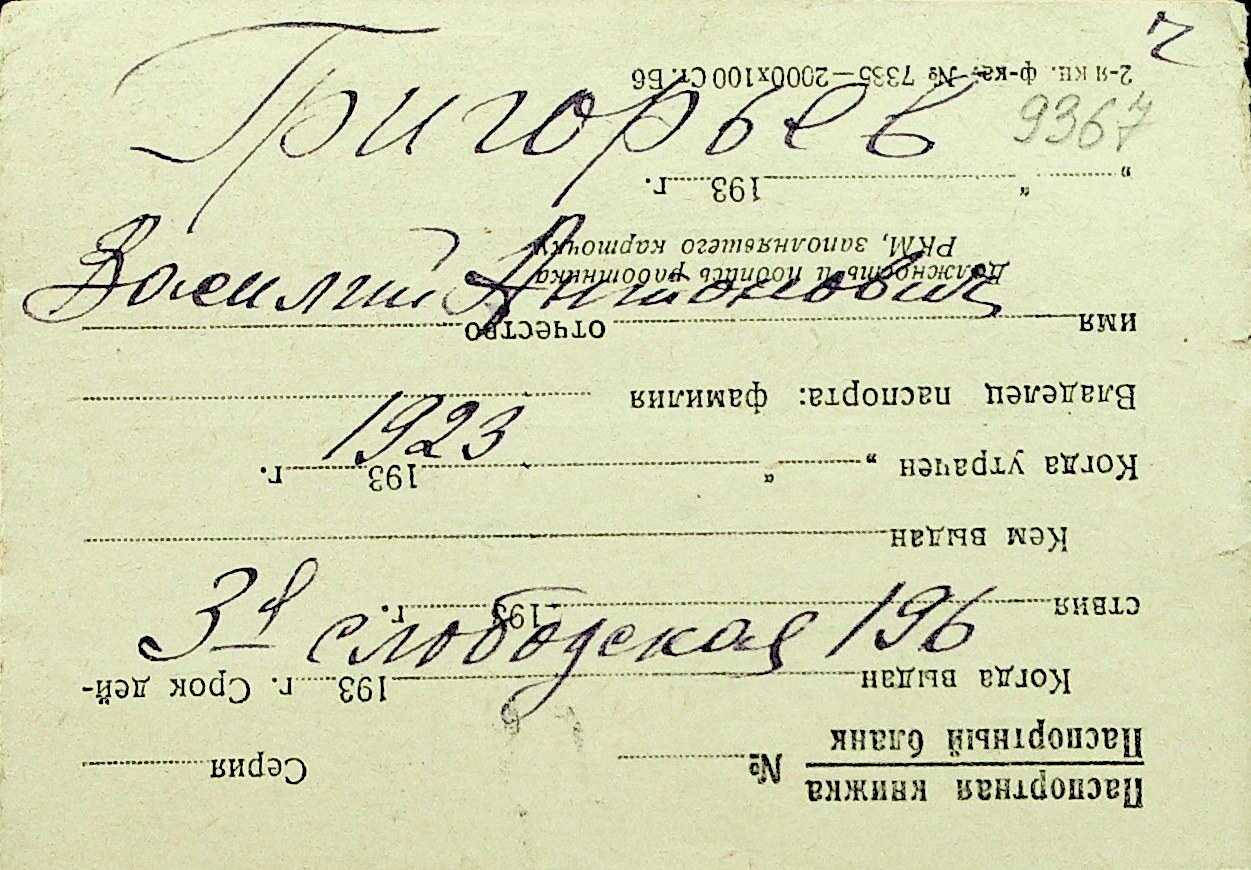 ч
Григорьев
9367
Василий Антонович
1923
3я слободская 196
Паспортная книжка
Паспортный бланк
№ Серия
Когда выдан 193 г. Срок дей-
ствия 193 г.
Кем выдан
Когда утрачен „ “ 193 г.
Владелец паспорта: фамилия
имя отчество
Должность и подпись работника
РКМ, заполнявшего карточку
„ “ 193 г.
2-я кн. ф-ка. № 7335—2000х100 Ст. Б6